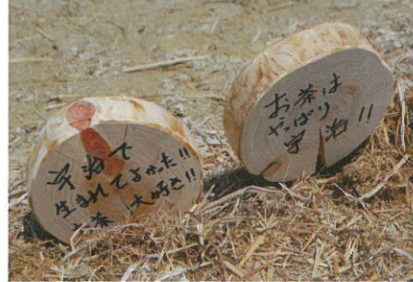 宇治で
生まれてよかった!!
茶 大好き!!
お茶は
やっぱり
宇治!!